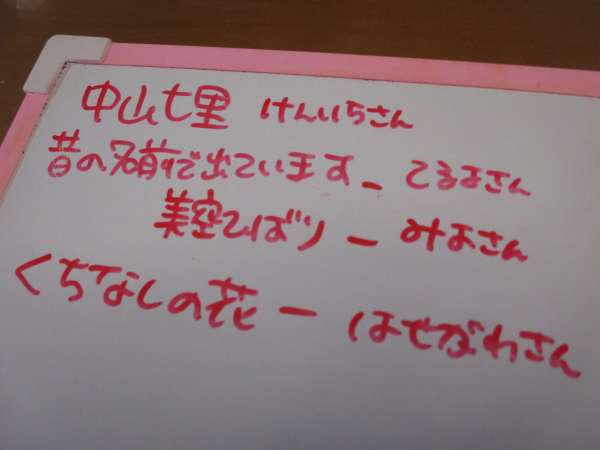 中山七里 けんいちさん
昔の名前で出ています - てるよさん
美空ひばり - みよさん
くちなしの花 - はせがわさん